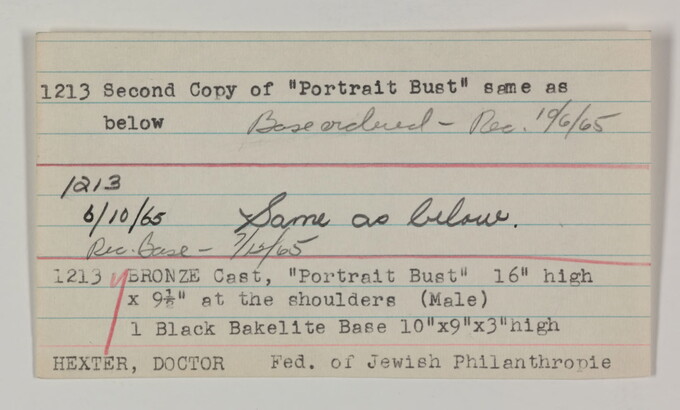 1213 Second Copy of "Portrait Bust" same as
below Base ordered - Rec. 10/6/65
1213
6/10/65 Same as below.
Rec. Base - 7/12/65
1213 BRONZE Cast, "Portrait Bust" 16" high
x 9½" at the shoulders (Male)
1 Black Bakelite Base 10"x9"x3"high
HEXTER, DOCTOR Fed. of Jewish Philanthropie